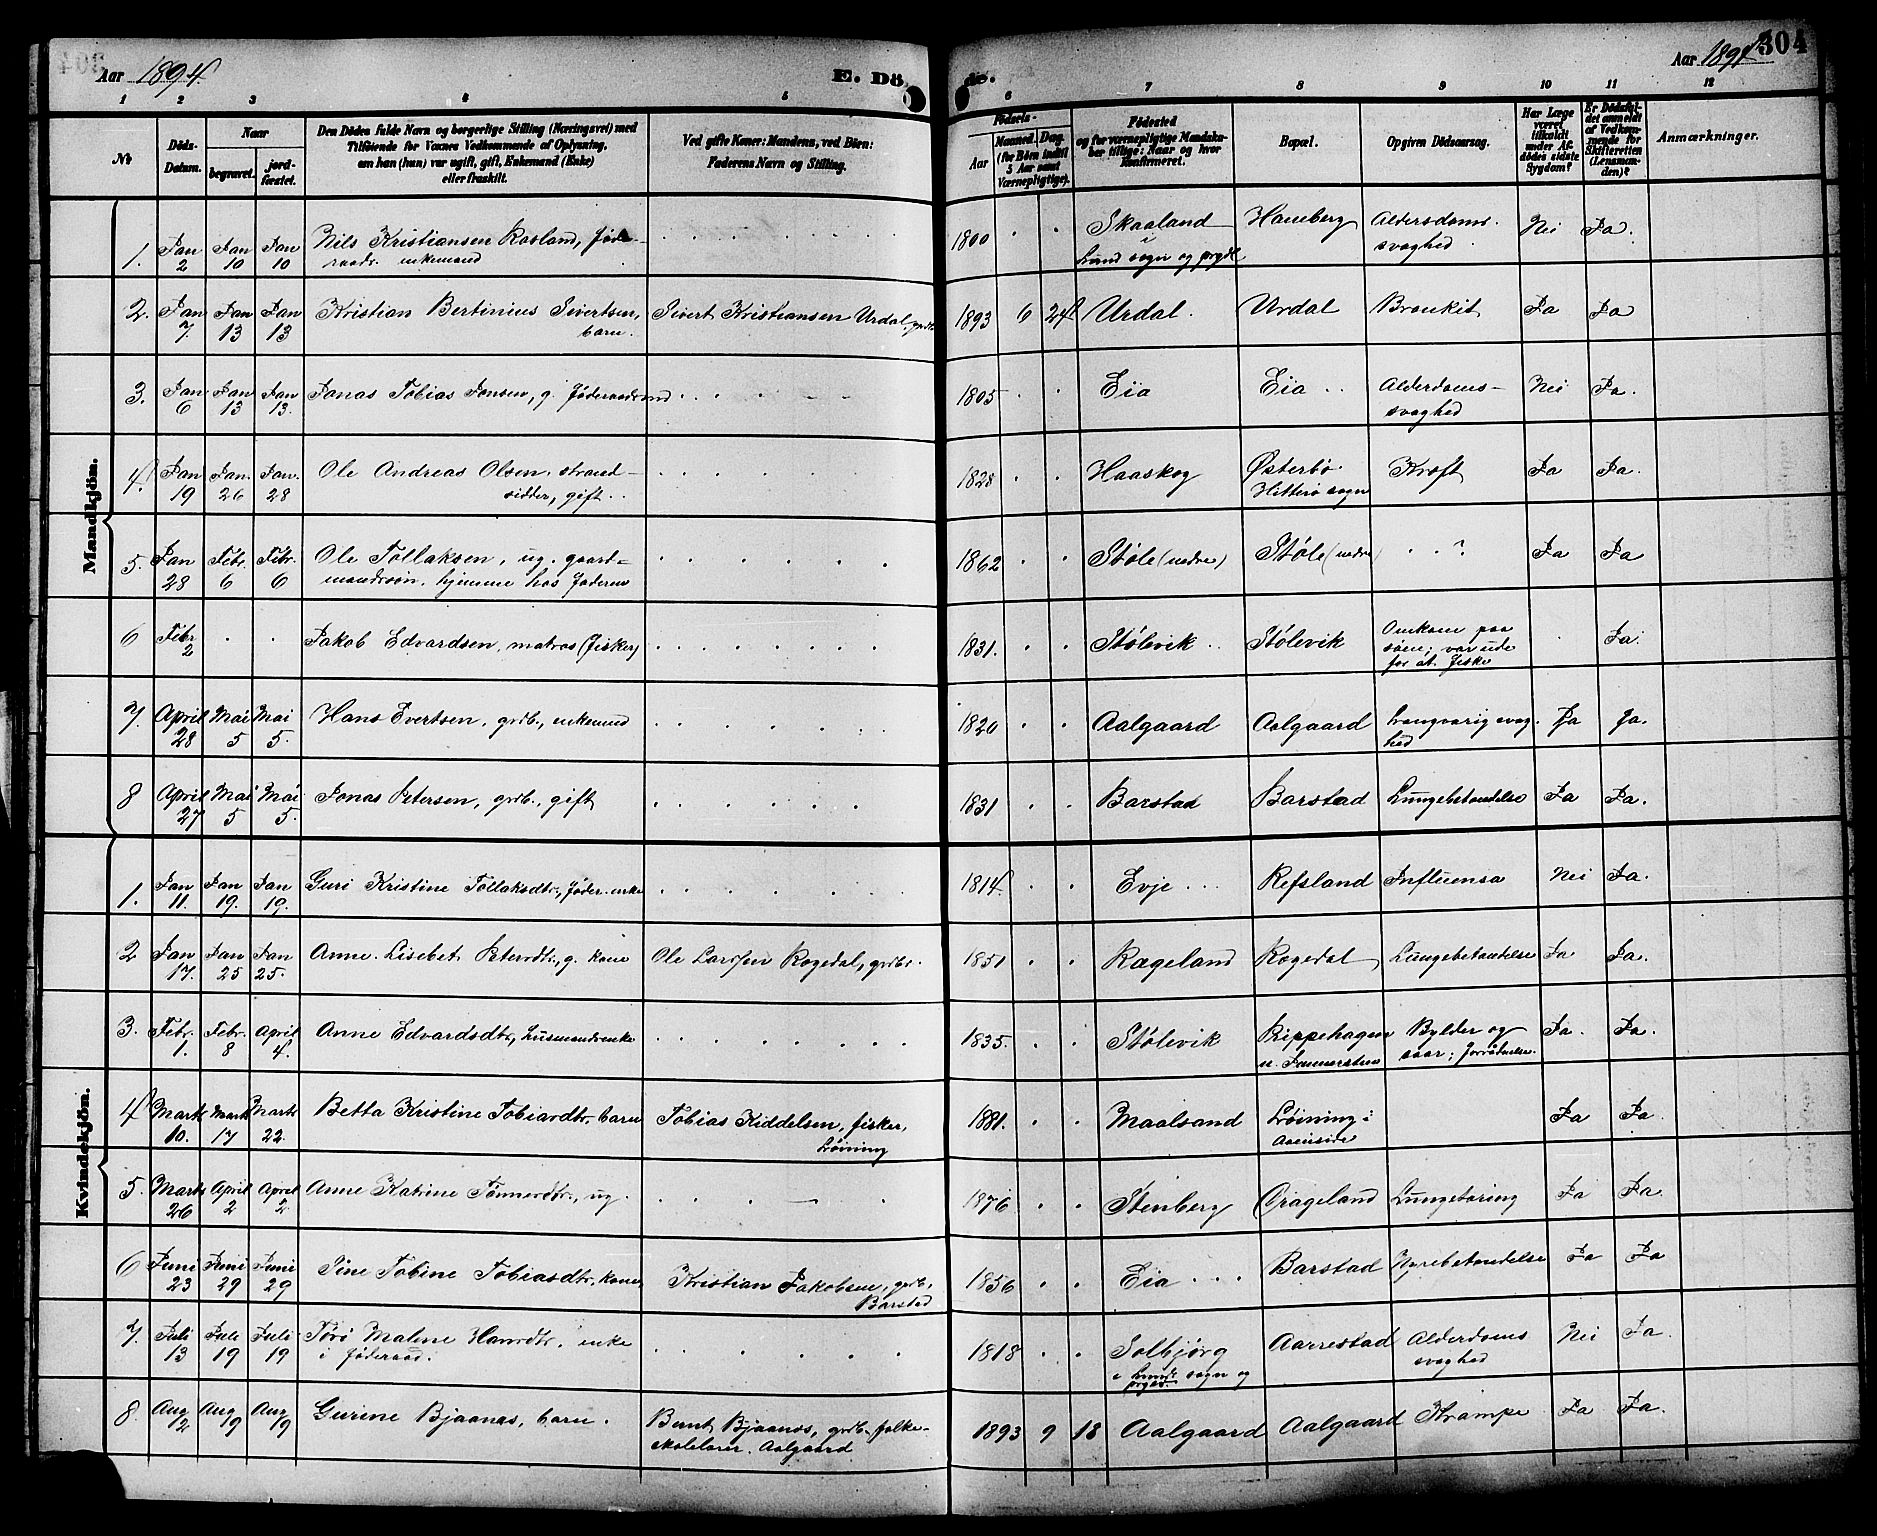 304
Aar 1894.
E. Dö
de.
Aar 1894
1 2 3 4 5 6 7 8 9 10 11 12
No
Döds-Datum.
Naar
begravet.
jord-fæstet.
Den Dödes fulde Navn og borgerlige Stilling (Næringsvei) med
Tilföiende for Voxnes Vedkommende af Oplysning,
om han (hun) var ugift, gift, Enkemand (Enke)
eller fraskilt.
Ved gifte Koner: Mandens, ved Börn:
Faderens Navn og Stilling.
Födsels-
Aar
Maaned. Dag.
(for Börn indtil
5 Aar samt
Værnepligtige).
Födested
og for værnepligtige Mandska-
ber tillige: Naar og hvor
konfirmeret.
Bopæl.
Opgiven Dödsaarsag.
Har Læge
været
tilkaldt
under Af-
dödes sidste
Sygdom?
Er Dödsfal-
det anmeldt
af Vedkom-
mende for
Skifteretten
(Lensman-
den)?
Anmærkninger.
Mandkjön.
1. Jan 2 Jan 10 Jan 10 Nils Kristiansen Rosland, føde-
raadr. enkemand 1800 Skaaland
i
Lund sogn og prgd. Haneberg Alderdoms.
svaghed Nei Ja.
2. Jan 7. Jan 13 Jan 13 Kristian Bertinius Sivertsen,
barn. Sivert Kristiansen Urdal, grdb. 1893 6 24 Urdal. Urdal Bronkit Ja Ja
3. Jan 6 Jan 13 Jan 13. Jonas Tobias Jonsen, g. føderaadsmd 1805 Eia Eia Alderdoms-
svaghed Nei Ja.
4. Jan 19 Jan. 26 Jan. 28 Ole Andreas Olsen, strand-
sidder, gift 1828 Haaskog Østerbø
Hitterø sogn Kræft Ja Ja.
5. Jan 28 Febr. 6 Febr. 6 Ole Tollaksen, ug. gaard-
mandssøn, hjemme hos faderen 1862 Støle (nedre) Støle (nedre) ? Ja Ja
6 Febr 2 Jakob Edvardsen, matros (fisker) 1831. Stølevik Stølevik Omkom paa
søen; var ude
for at fiske Ja
7. April 28 Mai 5 Mai 5. Hans Evertsen, grdb., enkemnd 1820 Aalgaard Aalgaard Langvarig svag-
hed Ja Ja.
8 April 27 Mai 5 Mai 5. Jonas Petersen, grdb., gift 1831 Barstad Barstad Lungebetændelse Ja Ja.
Kvindekjön.
1. Jan 11. Jan 19. Jan 19. Guri Kristine Tollaksdtr., føder. enke 1814. Evje Refsland Influensa Nei Ja.
2 Jan 17. Jan 25 Jan 25. Anne Lisebet Petersdtr., g. kone Ole Larssen Rogedal, grdbr. 1851 Rægeland Rogedal Lungebetændelse Ja Ja.
3. Febr. 1. Febr. 8 April 4. Anne Edvardsdtr., husmandsenke 1835. Stølevik Rippehagen
Bylder og
saar; forraadnelse. Ja. Ja.
4 Marts 10. Marts 17 Marts 22. Betta Kristine Tobiasdtr., barn Tobias Kiddelsen, fisker,
Løining 1881. Maalsand Løining i
Aaensire Ja Ja.
5. Marts 26 April 2 April 2. Anne Katrine Tønnesdtr., ug. 1876 Stenberg Drageland Lungetæring Ja Ja.
6 Juni 23 Juni 29 Juni 29 Sine Tobine Tobiasdtr., kone Kristian Jakobsen, grdb,
Barstad 1856 Eia Barstad Nyrebetændelse Ja Ja
7. Juli 13 Juli 19 Juli 19 Tørø Malene Hansdtr. enke
i føderaad. 1818 Solbjørg
i Lunds sogn og
prgd. Aarrestad Alderdoms
svaghed Nei Ja.
8. Aug 2 Aug 19 Aug 19 Gurine Bjaanæs, barn. Bernt Bjaanæs, grdb. folke-
skolelærer. Aalgaard 1893 9 18 Aalgaard Aalgaard Krampe Ja Ja.